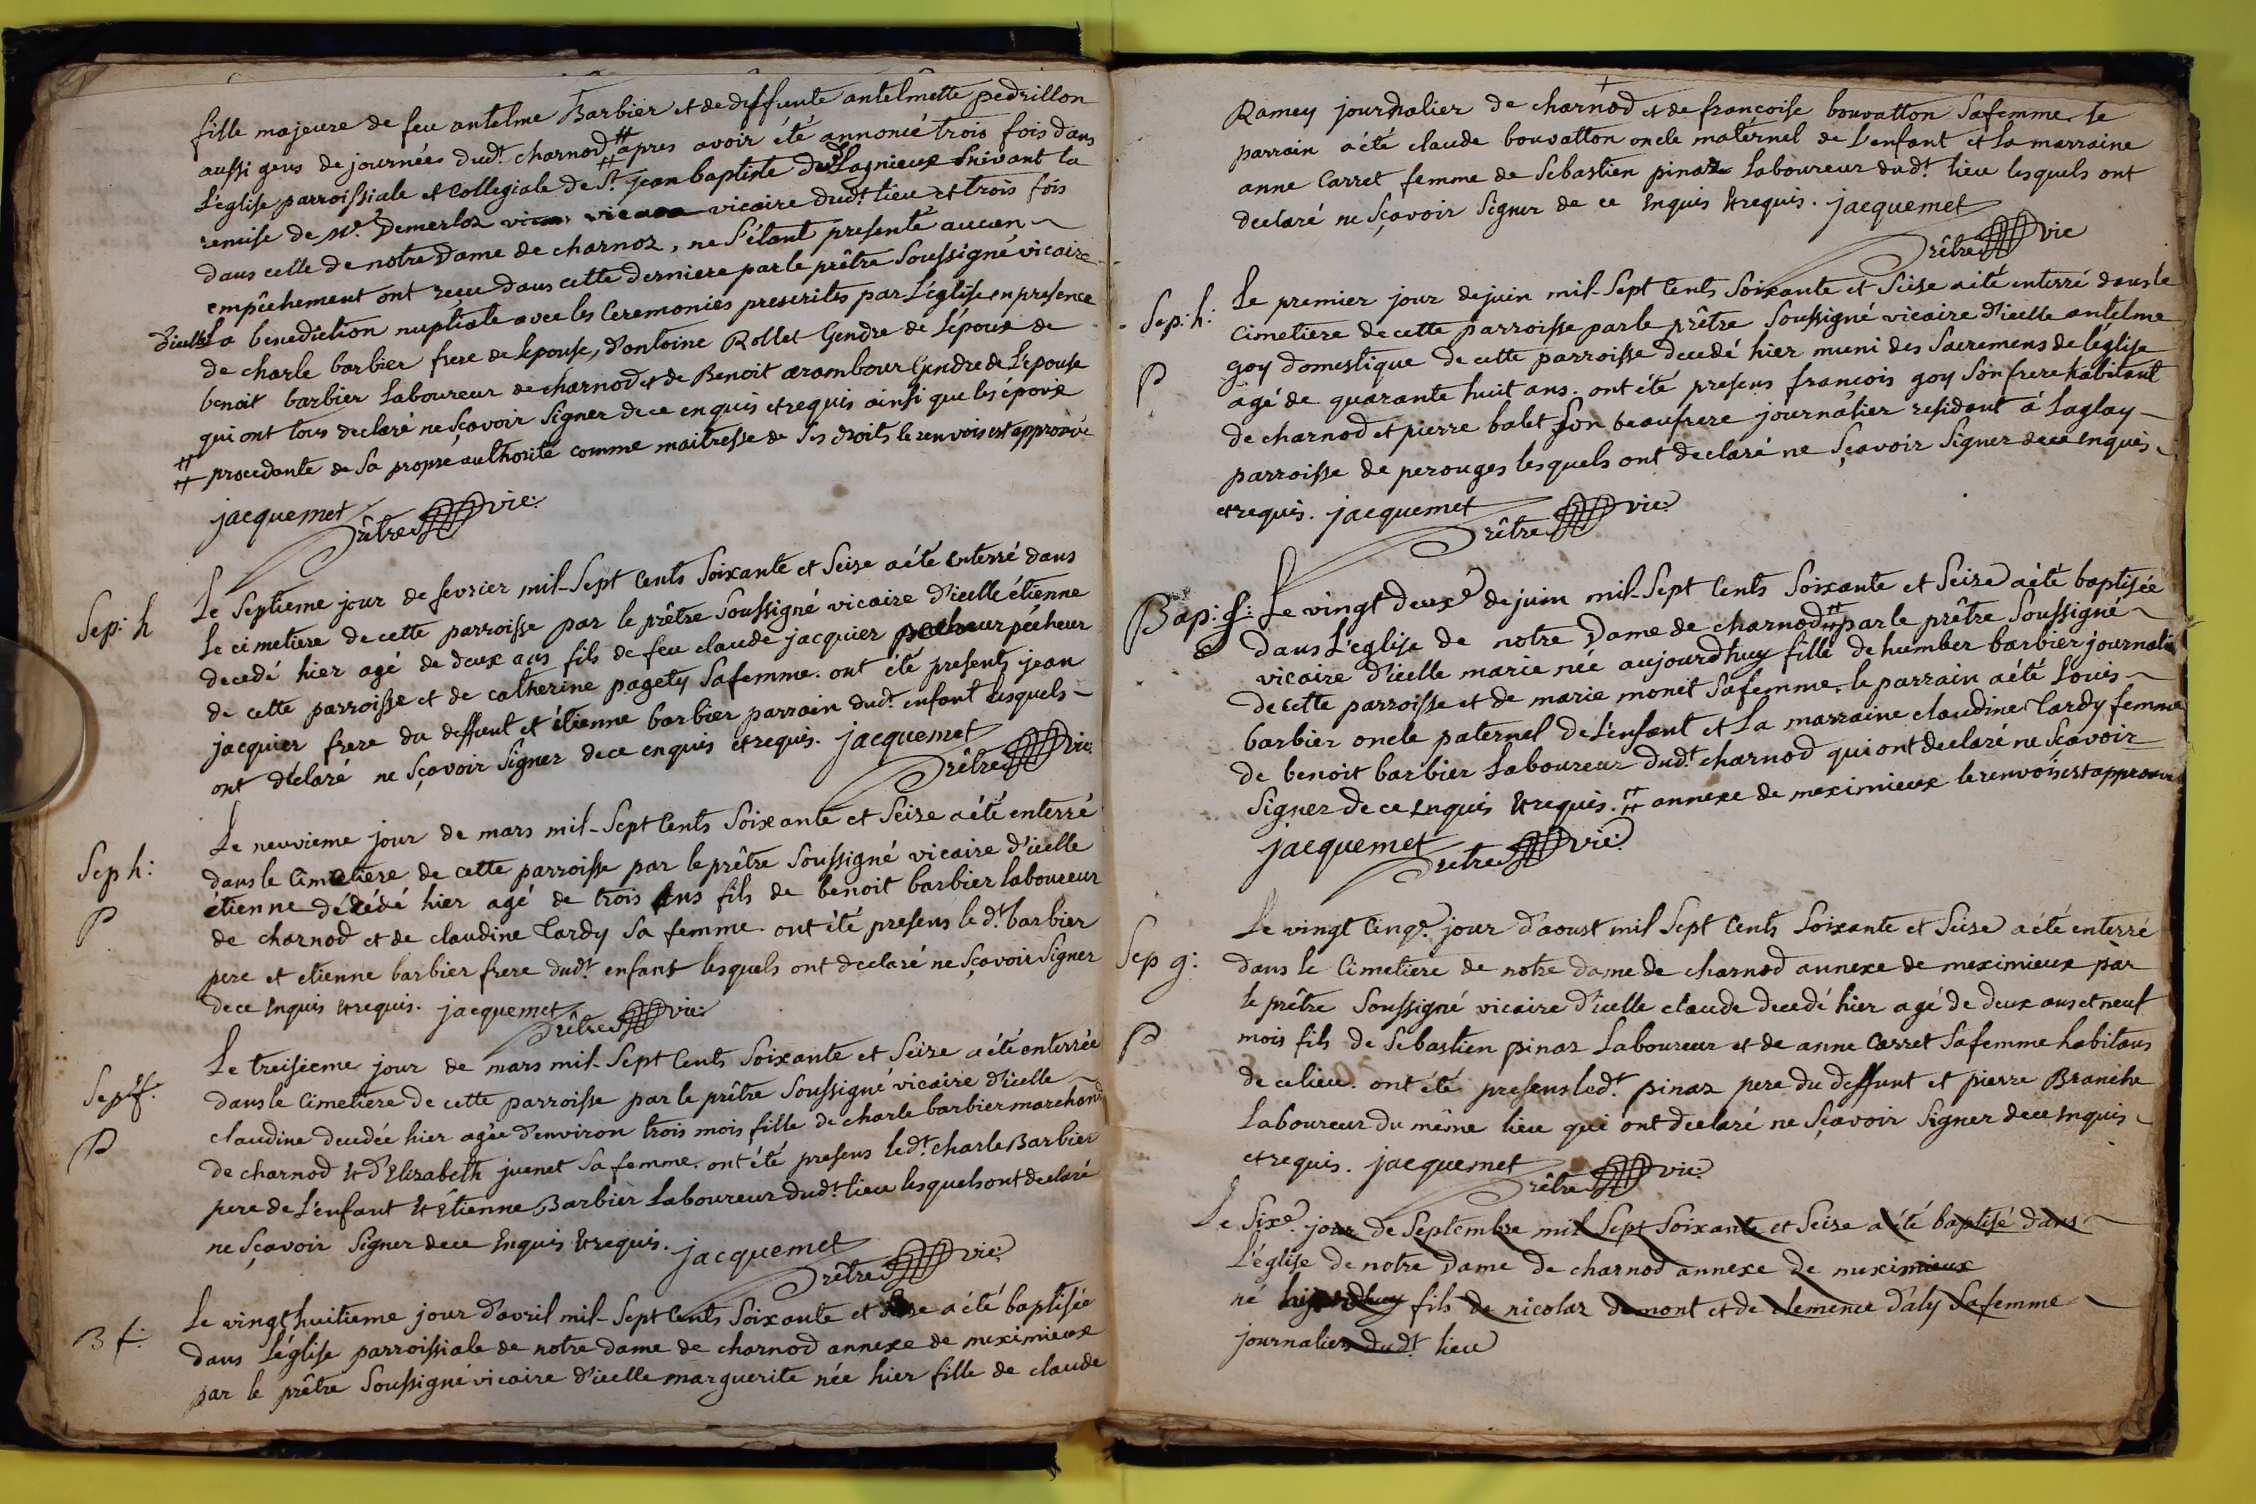 fille majeure de feu antelme Barbier et de deffunte antelmette pedrillon
aussi gens de journées dud.t charnod ⁜ apres avoir été annoncé trois fois dans
L'eglise parroissiale et Collegiale de S.t jean baptiste de Lagnieux suivant la
remise de M.r Demerloz vicaire dud.t lieu et trois fois
dans celle de notre Dame de charnoz, ne s'étant presenté aucun
empêchement ont recu dans cette derniere par le prêtre Soussigné vicaire
d'icelle La benediction nuptiale avec les Ceremonies prescrites par L'église en presence
de charle barbier frere de lepouse, d'antoine Rollet Gendre de L'époux de
benoit barbier Laboureur de charnod et de Benoit arambour Gendre de L'epouse
qui ont tous declaré ne sçavoir signer de ce enquis et requis ainsi que les époux
⁜ procedante de sa propre authorité comme maitresse de ses droits le renvois est approuvé
jacquemet
Prêtre vic:
Sep: h Le Septieme jour de fevrier mil-Sept Cents Soixante et Seise a été enterré dans
le cimetiere de cette parroisse par le prêtre Soussigné vicaire d'icelle étienne
decedé hier agé de deux ans fils de feu claude jacquier pêcheur
de cette parroisse et de catherine pagety Safemme. ont été presents jean
jacquier frere du deffunt et étienne barbier parrain dud.t enfant lesquels
ont déclaré ne sçavoir Signer de ce enquis et requis. jacquemet
Prêtre vic:
Le neuvieme jour de mars mil-Sept Cents Soixante et Seize a été enterré
Sep h: dans le Cimetiere de cette parroisse par le prêtre Soussigné vicaire d'icelle
étienne décédé hier agé de trois ans fils de benoit barbier laboureur
P de charnod et de claudine Tardy Sa femme. ont été presens le d.t barbier
pere et etienne barbier frere dud.t enfant lesquels ont declaré ne sçavoir Signer
de ce Enquis et requis. jacquemet
Prêtre vic:
Le treisieme jour de mars mil-Sept Cents Soixante et Seize a été enterrée
Sep f. dans le Cimetiere de cette parroisse par le prêtre Soussigné vicaire d'icelle
claudine decedée hier agée d'environ trois mois fille de charle barbier marchand
P de charnod et d'Elizabeth juenet Sa femme. ont été presens le d.t charle Barbier
pere de L'enfant et Etienne Barbier Laboureur dud.t lieu lesquels ont declaré
ne sçavoir Signer de ce Enquis et requis. jacquemet
Prêtre vic:
Le vingthuitieme jour d'avril mil-Sept Cents Soixante et Seise a été baptisée
B f: dans L'église parroissiale de notre dame de charnod annexe de meximieux
par le prêtre Soussigné vicaire d'icelle marguerite née hier fille de claude
Ramey journalier de charnod et de françoise bouvatton Safemme. le
parrain a été claude bouvatton oncle maternel de L'enfant et La marraine
anne Carret femme de Sebastien pinaz Laboureur dud.t lieu lesquels ont
declaré ne sçavoir signer de ce Enquis et requis. jacquemet
Prêtre vic
Le premier jour de juin mil-Sept Cents Soixante et Seise a été enterré dans le
Sep: h: Cimetiere de cette parroisse par le prêtre Soussigné vicaire d'icelle antelme
goy domestique de cette parroisse decedé hier muni des Sacremens de l'église
P agé de quarante huit ans. ont été presens françois goy son frere habitant
de charnod et pierre balet son beaufrere journalier residant à Laglay
parroisse de perouges lesquels ont declaré ne Sçavoir Signer de ce enquis
et requis. jacquemet
Prêtre vic:
Bap: f: Le vingt deux.e de juin mil-Sept Cents Soixante et Seize a été baptisée
dans L'eglise de notre Dame de charnod ⁜ par le prêtre Soussigné
vicaire d'icelle marie née aujourdhuy fille de humber barbier journalier
de cette parroisse et de marie monet Safemme. le parrain a été Louis
barbier oncle paternel de L'enfant et La marraine claudine Tardy femme
de benoit barbier Laboureur dud.t charnod qui ont declaré ne Scavoir
Signer de ce enquis et requis. ⁜ annexe de meximieux le renvois est approuvé
jacquemet
Prêtre vic:
Le vingt Cinq.e jour d'aoust mil Sept Cents Soixante et Seize a été enterré
Sep g: dans le Cimetiere de notre dame de charnod annexe de meximieux par
le prêtre Soussigné vicaire d'icelle claude decedé hier agé de deux ans et neuf
P mois fils de Sebastien pinaz Laboureur et de anne Carret Safemme habitans
de ce lieu. ont été presens led.t pinaz pere du deffunt et pierre Branche
Laboureur du même lieu qui ont declaré ne Sçavoir Signer de ce enquis
et requis. jacquemet
Prêtre vic:
Le Six.e jour de Septembre mil Sept Soixante et Seize a été baptisé dans
L'église de notre Dame de charnod annexe de meximieux
né fils de nicolaz dumont et de clemence d'aly Safemme
journaliers dud.t lieu